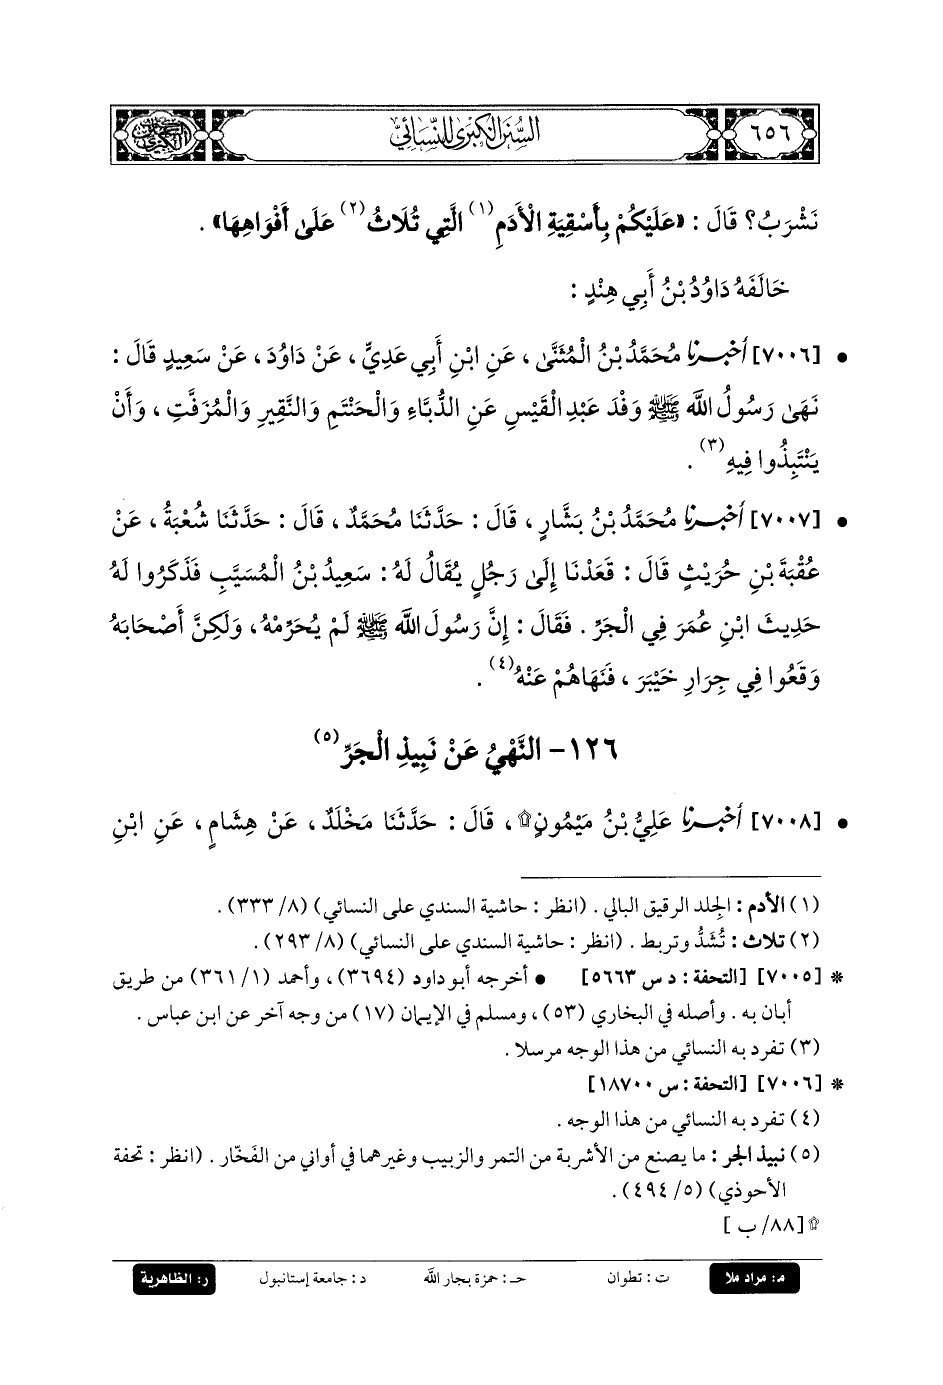 ٦٥٦
السنن الكبرى للنسائي
نَشْرَبُ؟ قَالَ : «عَلَيْكُمْ بِأَسْقِيَةِ الْأَدَمِ(١) الَّتِي تُلَاثُ(٢) عَلَىٰ أَفْوَاهِهَا» .
خَالَفَهُ دَاوُدُ بْنُ أَبِي هِنْدٍ :
• [٧٠٠٦] أخبرنا مُحَمَّدُ بْنُ الْمُثَنَّىٰ ، عَنِ ابْنِ أَبِي عَدِيٍّ ، عَنْ دَاوُدَ ، عَنْ سَعِيدٍ قَالَ :
نَهَىٰ رَسُولُ اللَّه ﷺ وَفْدَ عَبْدِ الْقَيْسِ عَنِ الدُّبَّاءِ وَالْحَنْتَمِ وَالنَّقِيرِ وَالْمُزَفَّتِ ، وَأَنْ
يَنْتَبِذُوا فِيهِ(٣) .
• [٧٠٠٧] أخبرنا مُحَمَّدُ بْنُ بَشَّارٍ ، قَالَ : حَدَّثَنَا مُحَمَّدٌ ، قَالَ : حَدَّثَنَا شُعْبَةُ ، عَنْ
عُقْبَةَ بْنِ حُرَيْثٍ قَالَ : قَعَدْنَا إِلَىٰ رَجُلٍ يُقَالُ لَهُ : سَعِيدُ بْنُ الْمُسَيَّبِ فَذَكَرُوا لَهُ
حَدِيثَ ابْنِ عُمَرَ فِي الْجَرِّ . فَقَالَ : إِنَّ رَسُولَ اللَّه ﷺ لَمْ يُحَرِّمْهُ ، وَلَكِنَّ أَصْحَابَهُ
وَقَعُوا فِي جِرَارِ خَيْبَرَ ، فَنَهَاهُمْ عَنْهُ(٤) .
١٢٦- النَّهْيُ عَنْ نَبِيذِ الْجَرِّ(٥)
• [٧٠٠٨] أخبرنا عَلِيُّ بْنُ مَيْمُونٍ۩ ، قَالَ : حَدَّثَنَا مَخْلَدٌ ، عَنْ هِشَامٍ ، عَنِ ابْنِ
(١) الأدم : الجلد الرقيق البالي . (انظر : حاشية السندي على النسائي) (٨/ ٣٣٣) .
(٢) تلاث : تُشَدُّ وتربط . (انظر : حاشية السندي على النسائي) (٨/ ٢٩٣) .
* [٧٠٠٥] [التحفة : د س ٥٦٦٣] • أخرجه أبو داود (٣٦٩٤) ، وأحمد (١/ ٣٦١) من طريق
أبان به . وأصله في البخاري (٥٣) ، ومسلم في الإيمان (١٧) من وجه آخر عن ابن عباس .
(٣) تفرد به النسائي من هذا الوجه مرسلا .
* [٧٠٠٦] [التحفة : س ١٨٧٠٠]
(٤) تفرد به النسائي من هذا الوجه .
(٥) نبيذ الجر : ما يصنع من الأشربة من التمر والزبيب وغيرهما في أواني من الفَخّار . (انظر : تحفة
الأحوذي) (٥/ ٤٩٤) .
۩ [٨٨/ ب ]
م: مراد ملا ت : تطوان حـ : حمزة بجار الله د : جامعة إستانبول ر: الظاهرية